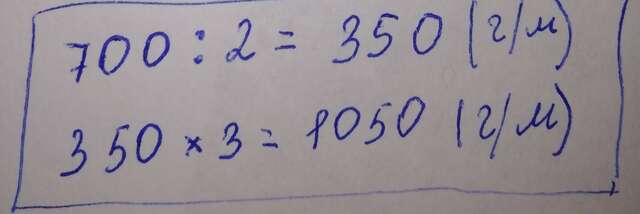 700 : 2 = 350 (г/м)
350 × 3 = 1050 (г/м)